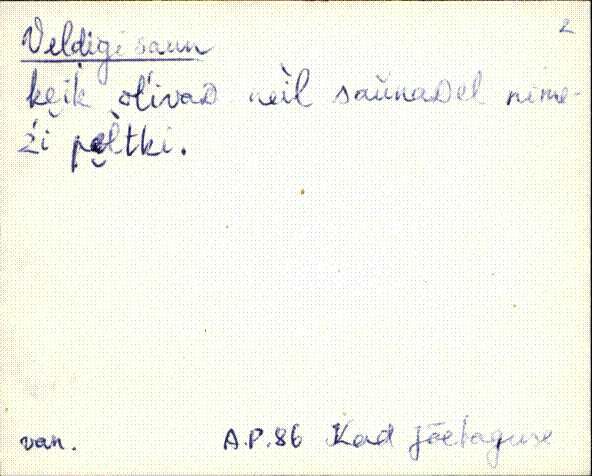 2
Veldigi saun
kẹik ol'ivaD neìl saùnaDel nime-
z'i pẹltki.
van. A.P.86 Kad Jõetaguse